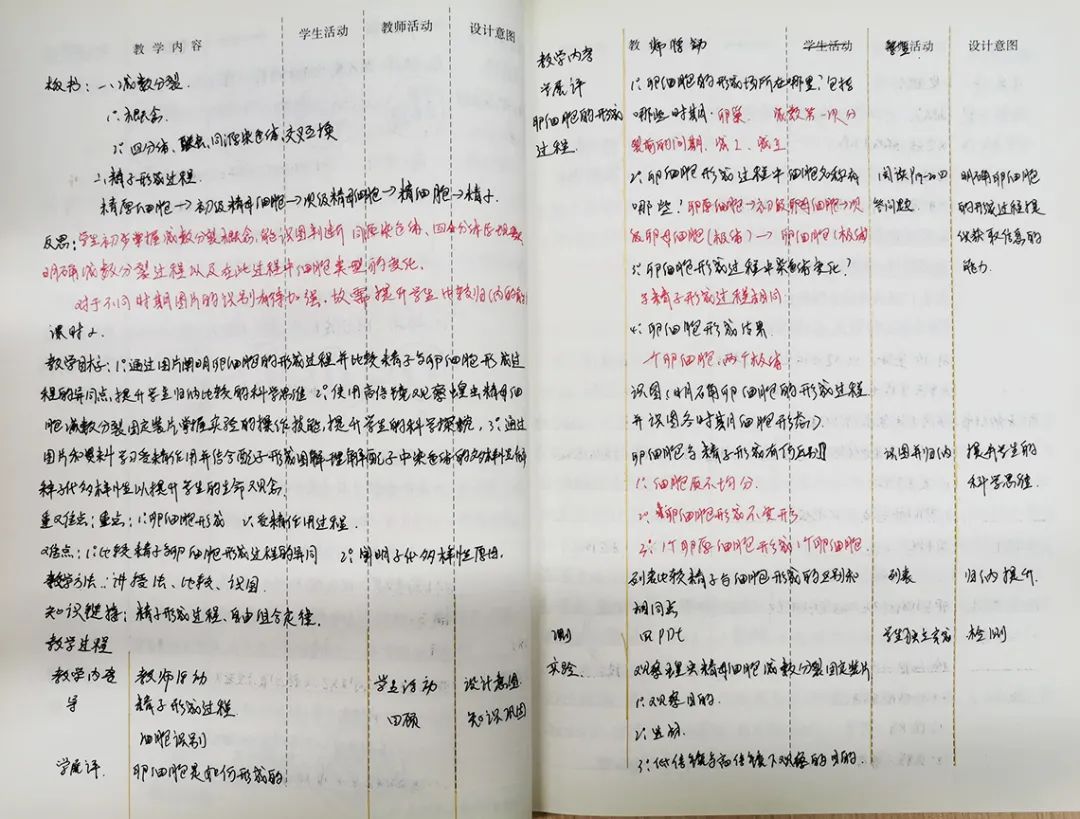 教学内容 学生活动 教师活动 设计意图
板书：一、减数分裂.
1°概念
2°四分体、联会、同源染色体、交叉互换
二、精子形成过程.
精原细胞→初级精母细胞→次级精母细胞→精细胞→精子.
反思：学生初步掌握减数分裂概念,能识图判断同源染色体、四分体
明确减数分裂过程以及在此过程中细胞类型的变化.
对于不同时期图片的识别有待加强，故需提升学生比较归纳的能
课时2.
教学目标：1°通过图片阐明卵细胞的形成过程并比较精子与卵细胞形成过
程的异同点,提升学生归纳比较的科学思维 2°使用高倍镜观察蝗虫精母细
胞减数分裂固定装片,掌握实验的操作技能,提升学生的科学探究. 3°通过
图片和资料学习受精作用并结合配子形成图解理解配子中染色体的多样性
种子代多样性以提升学生的生命观念
重难点：重点：1°卵细胞形成 2°受精作用过程.
难点：1°比较精子卵细胞形成过程的异同 2°阐明子代多样性原因.
教学方法：讲授法、比较、识图.
知识链接：精子形成过程、自由组合定律.
教学过程
教学内容 教师活动 学生活动 设计意图
导 精子形成过程 回顾 知识巩固
细胞识别
学展评. 卵细胞是如何形成的
教学内容 教师活动 学生活动 活动 设计意图
学展评
卵细胞的形成
过程.
1°卵细胞的形成场所在哪里？包括
哪些时期. 卵巢. 减数第一次分
裂前的间期、减Ⅰ、减Ⅱ
2°卵细胞形成过程中细胞名称有 阅读P19-20回 明确卵细胞
哪些？卵原细胞→初级卵母细胞→次 答问题 的形成过程提
级卵母细胞(极体)→卵细胞(极体) 升获取信息的
3°卵细胞形成过程中染色体变化？ 能力.
与精子形成过程相同
4°卵细胞形成结果.
一个卵细胞,两个极体
识图(明确卵细胞的形成过程
并识图各时期细胞形态).
卵细胞与精子形成有何区别 识图并归纳 提升学生的
1°细胞质不均分. 科学思维.
2°卵细胞形成不变形
3°1个卵原细胞形成1个卵细胞
列表比较精子与细胞形成的区别和 列表 归纳提升.
相同点
测 四PPt 学生独立完成 检测
实验. 观察蝗虫精母细胞减数分裂固定装片
1°观察目的.
3°低倍镜与高倍镜下观察的目的.